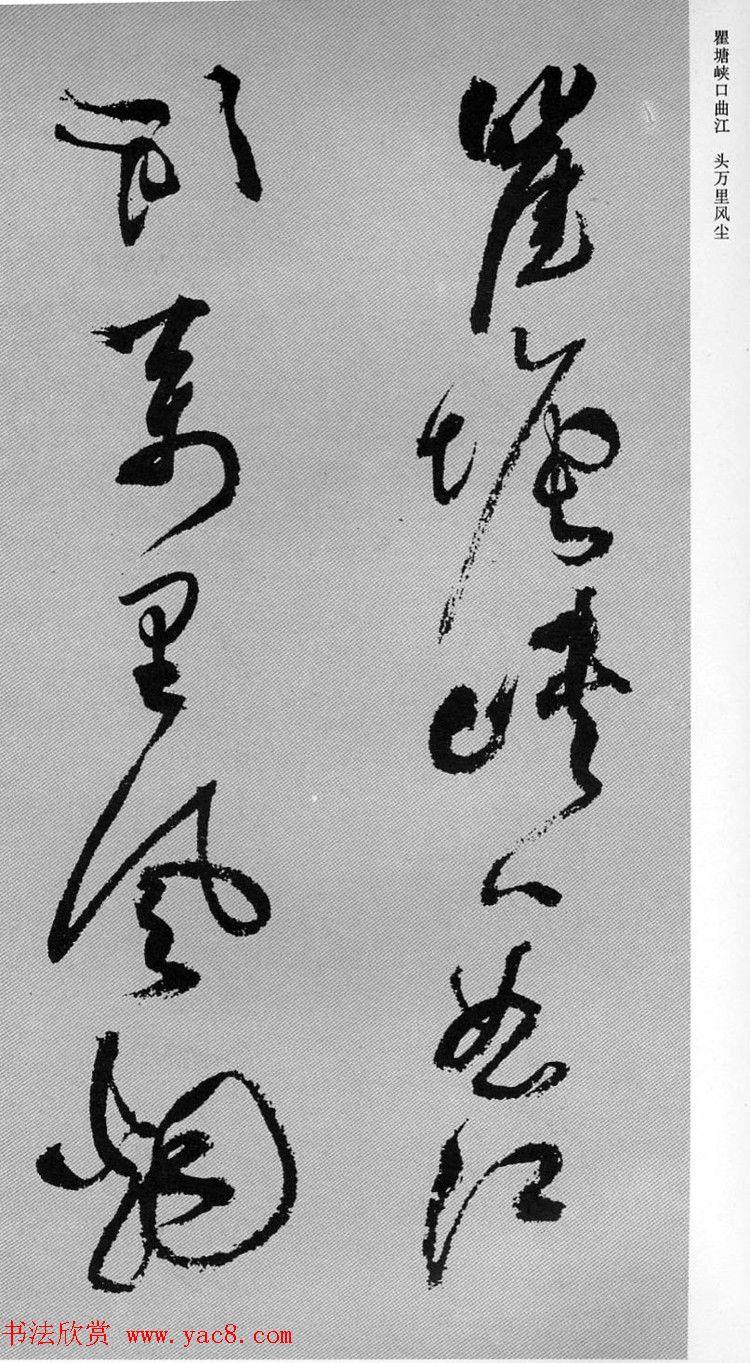 瞿塘峡口曲江　头万里风尘
瞿塘峽口曲江
頭萬里風烟
书法欣赏 www.yac8.com